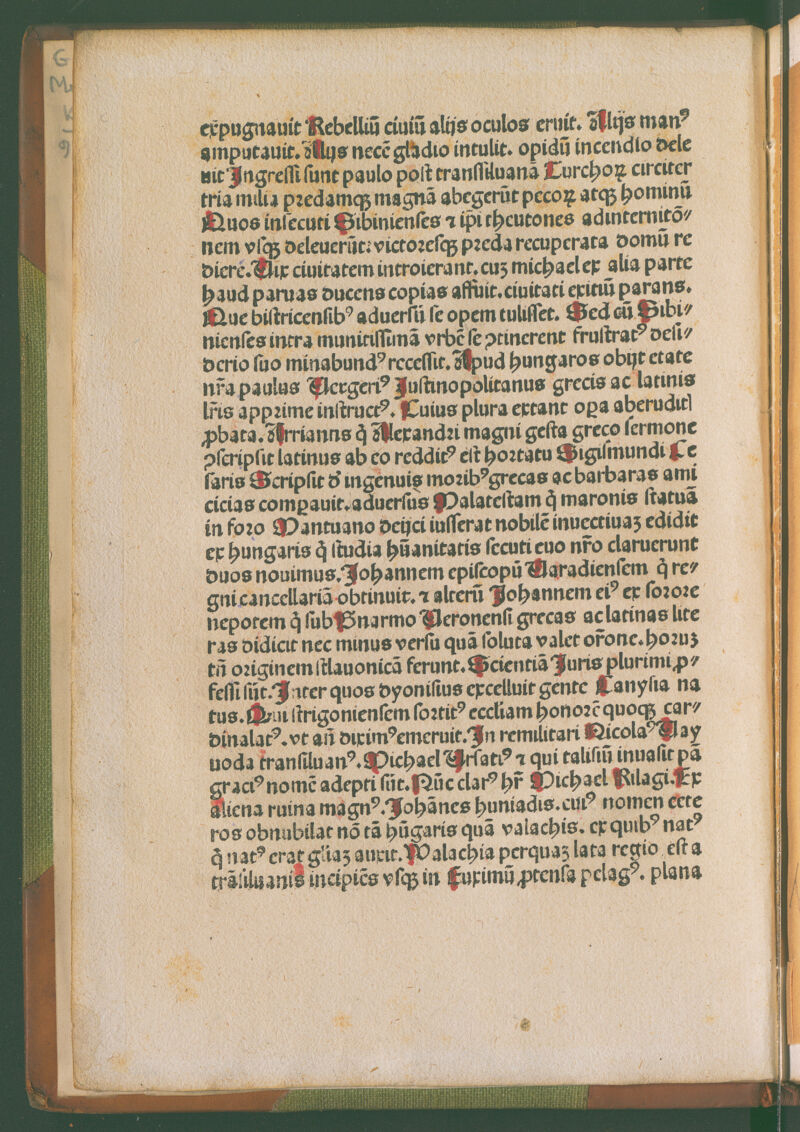 G
M
V
9
expugnauit Rebelliū ciuiū alijs oculos eruit. Alijs man⁹
amputauit. Alijs necē gladio intulit. opidū incendio dele
uit Ingreſſi ſunt paulo poſt tranſſiluanā Turchoꝝ circiter
tria milia pꝛedamqꝫ magnā abegerūt pecoꝝ atqꝫ hominū
Quos inſecuti Sibinienſes ⁊ ip̄i theutones adinternitō⸗
nem vſqꝫ deleuerūt: victoꝛeſqꝫ pꝛeda recuperata domū re
dierē. Uix ciuitatem introierant. cuꝫ michael ex alia parte
haud paruas ducens copias affuit. ciuitati exitiū parans.
Que biſtricenſib⁹ aduerſū ſe opem tuliſſet. Sed cū Sibi⸗
nienſes intra munitiſſimā vrbē ſe ꝯtinerent fruſtrat⁹ deſi⸗
derio ſuo minabund⁹ receſſit. Apud hungaros obijt etate
nr̄a paulus Uergeri⁹ Juſtinopolitanus grecis ac latinis
lr̄is appꝛime inſtruct⁹. Cuius plura extant oꝑa ab erudit̄
ꝓbata. Arrianns q̇ Alexandꝛi magni geſta greco ſermone
ꝯſcripſit latinus ab eo reddit⁹ eſt hoꝛtatu Sigiſmundi Ce
ſaris Scripſit đ ingenuis moꝛib⁹ grecas ac barbaras ami
cicias comꝑauit. aduerſus Malateſtam q̇ maronis ſtatuā
in foꝛo Mantuano deijci iuſſerat nobilē inuectiuaꝫ edidit
ex hungaris q̇ ſtudia hūanitatis ſecuti euo nr̄o claruerunt
duos nouimus. Johannem epiſcopū Uaradienſem q̇ re⸗
gni cancellariā obtinuit. ⁊ alterū Johannem ei⁹ ex ſoꝛoꝛe
nepotem q̇ ſub Gnarmo Ueronenſi grecas ac latinas lite
ras didicit nec minus verſu quā ſoluta valet or̄one. hoꝛuꝫ
tn̄ oꝛiginem ſtlauonicā ferunt. Scientiā Juris plurimi ꝓ⸗
feſſi ſūt. Inter quos dyoniſius excelluit gente Lanyſia na
tus. Qui ſtrigonienſem ſoꝛtit⁹ eccliam honoꝛē quoqꝫ car⸗
dinalat⁹. vt an̄ dixim⁹ emeruit. In re militari Nicola⁹ Way
uoda tranſiluan⁹. Michael Urſati⁹ ⁊ qui taliſiū inuaſit pā
graci⁹ nomē adepti ſūt. Nūc clar⁹ hr̄ Michael Kilagi. Ex
aliena ruina magn⁹. Johānes huniadis. cui⁹ nomen cete
ros obnubilat nō tā hūgaris quā valachis. ex quib⁹ nat⁹
q̇ nat⁹ erat gl̄iaꝫ auxit. Walachia perquaꝫ lata regio eſt a
trāſiluanis incipiēs vſqꝫ in Euximū ꝓtenſa pelag⁹. plana